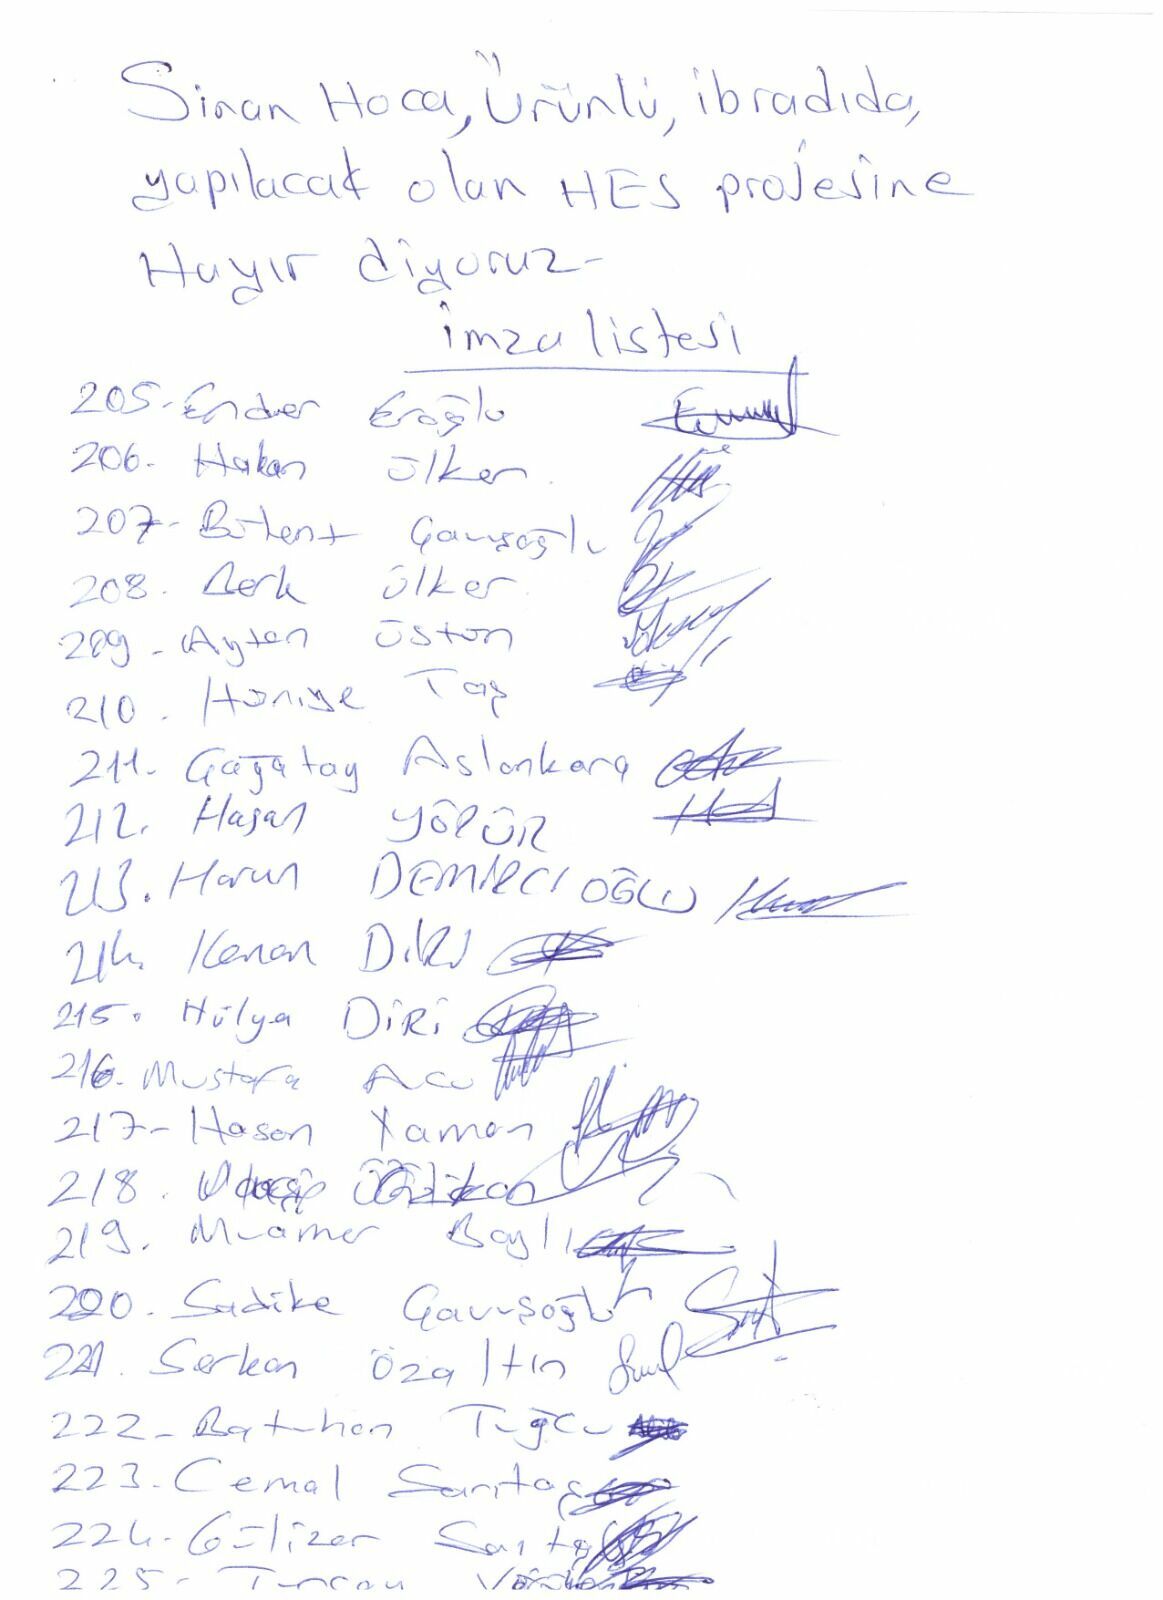 Sinan Hoca, Ürünlü, ibradıda,
yapılacak olan HES projesine
Hayır diyoruz-
imza listesi
205- Ender Eroğlu
206- Hakan ülker
207- Bülent Çavuşoğlu
208. Berk ülker
209- Ayten üstün
210. Hüniye Taş
211- Çağatay Aslankara
212. Hasan
213. Harun DEMİRCİOĞLU
214. Kenan DİRİ
215. Hülya DİRİ
216. Mustafa Acu
217- Hasan Yaman
218.
219. Muamer Baylı
220. Sadike Çavuşoğlu
221. Serkan Özaltın
222- Batuhan Tuğcu
223- Cemal Sarıtaş
224- Gülizer Sarıtaş
225-